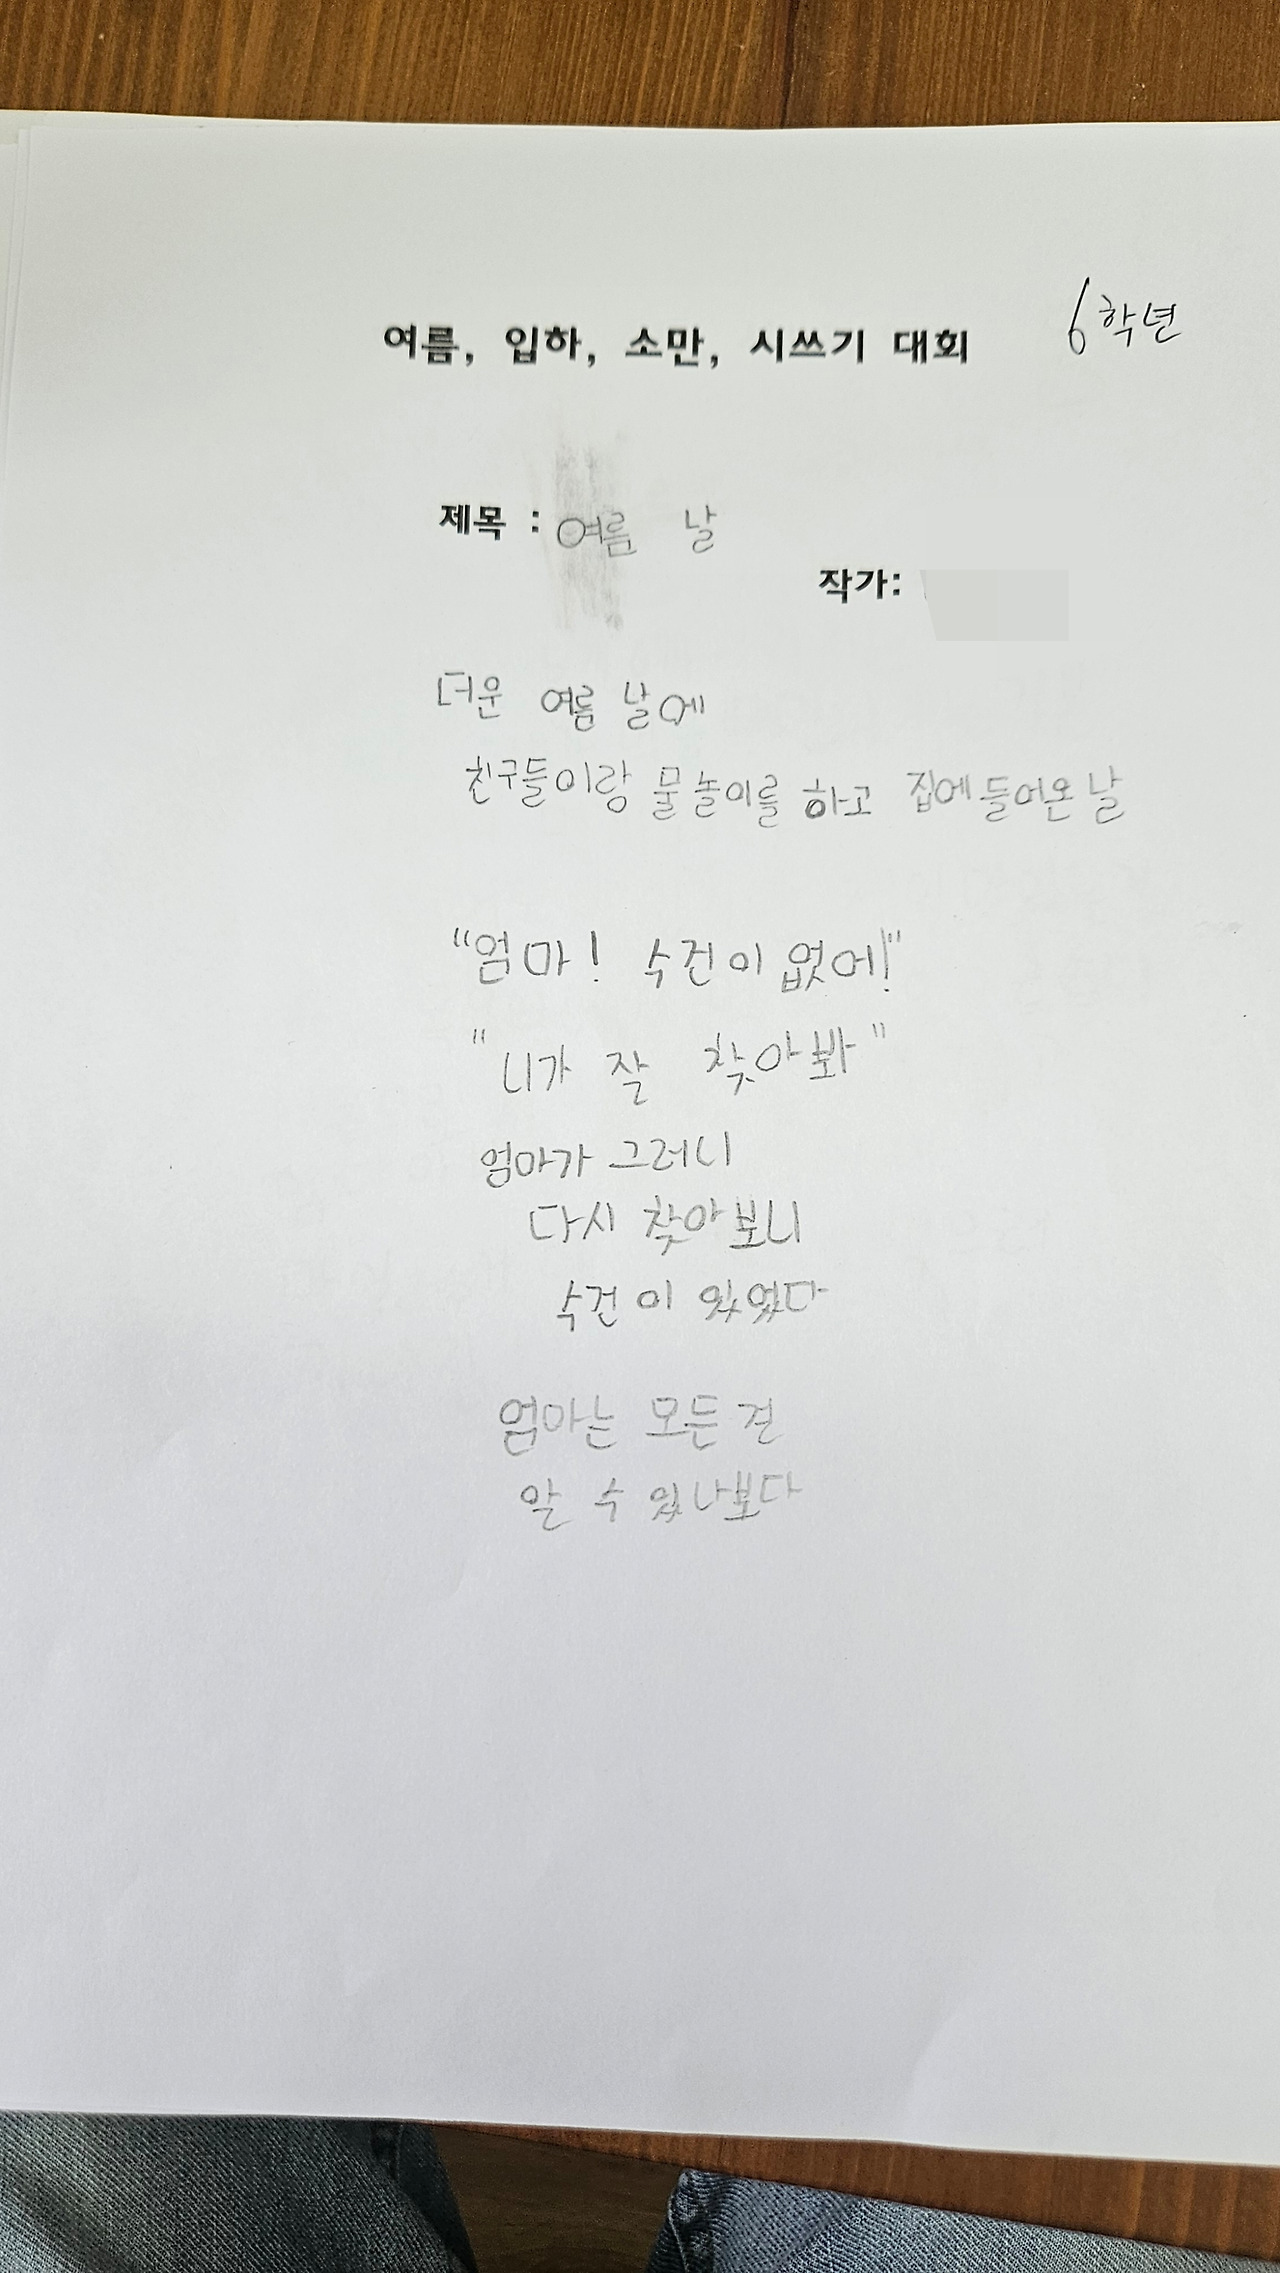 여름, 입하, 소만, 시쓰기 대회 6학년
제목 : 여름 날
작가:
더운 여름 날에
친구들이랑 물놀이를 하고 집에 들어온 날
"엄마! 수건이 없어!"
"니가 잘 찾아봐"
엄마가 그러니
다시 찾아보니
수건이 있었다
엄마는 모든 걸
알 수 있나보다